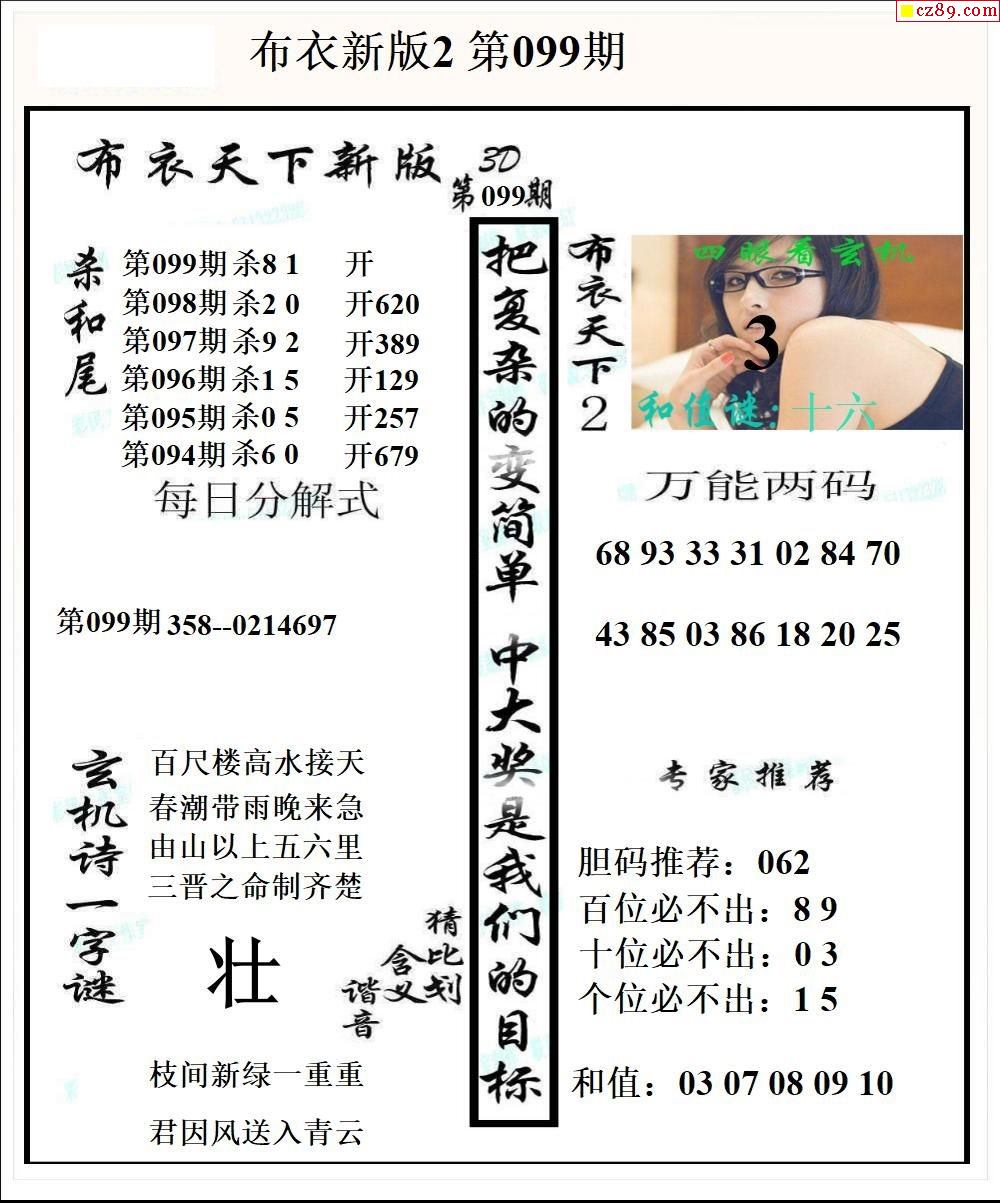 cz89.com
布衣新版2 第099期
布衣天下新版 3D
第099期
杀和尾
第099期 杀8 1 开
第098期 杀2 0 开620
第097期 杀9 2 开389
第096期 杀1 5 开129
第095期 杀0 5 开257
第094期 杀6 0 开679
每日分解式
第099期 358--0214697
玄机诗一字谜
百尺楼高水接天
春潮带雨晚来急
由山以上五六里
三晋之命制齐楚
壮
猜比划
含义
谐音
枝间新绿一重重
君因风送入青云
把复杂的变简单 中大奖是我们的目标
布衣天下2
四眼看玄机
3
和值谜:十六
万能两码
68 93 33 31 02 84 70
43 85 03 86 18 20 25
专家推荐
胆码推荐：062
百位必不出：8 9
十位必不出：0 3
个位必不出：1 5
和值：03 07 08 09 10